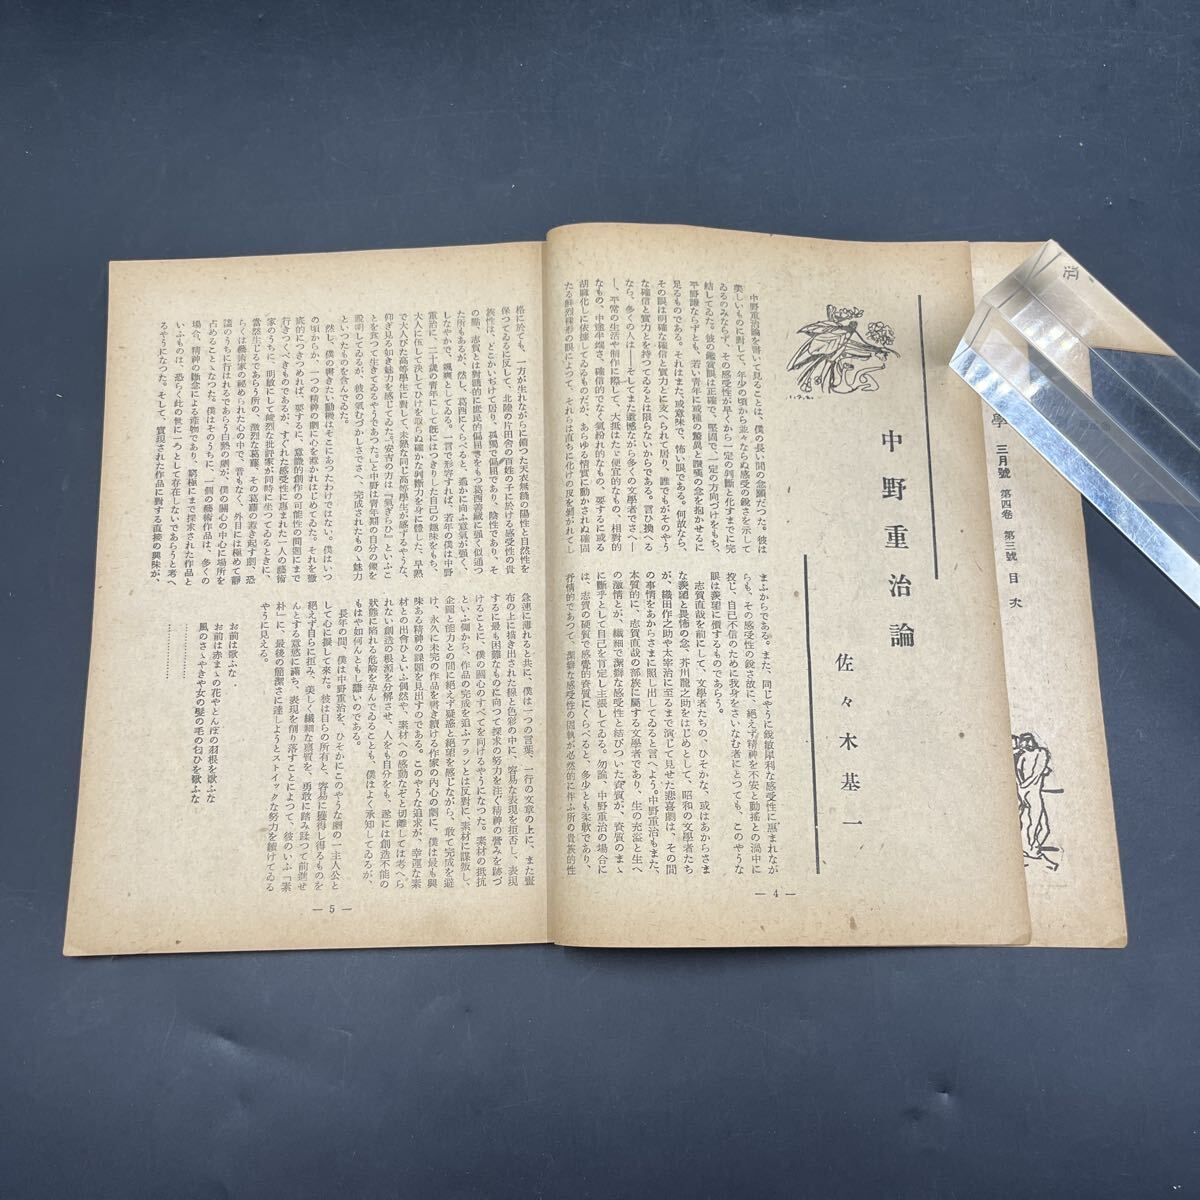 學 三月號 第四卷 第三號 目次
中野重治論
佐々木基一
中野重治論を書いて見ることは、僕の長い間の念願だつた。彼は
美しいものに對して、年少の頃から並々ならぬ感受性の鋭さを示して
ゐるのみならず、その感受性が早くから一定の判斷と化すまでに完
結してゐた。彼の鑑賞眼は正確で、堅固で、一定の方向づけをもつ。
平野謙ならずとも、若い青年に或種の驚異と讃嘆の念を抱かせるに
足るものである。それはまた、或意味で、怖い眼である。何故なら、
その眼は明確な確信と實力とに支へられて居り、誰でもがそのやう
な確信と實力とを持つてゐるとは限らないからである。言ひ換へる
なら、多くの人は——そしてまた遺憾ながら多くの文學者でさへ—
—、平常の生活や制作に際して、大抵はたゞ便宜的なもの、相對的
なもの、中途半端さ、確信的でなく氣紛れ的なもの、要するに或る
胡麻化しに依據してゐるものだが、あらゆる情實に動かされぬ確固
たる
まふからである。また、同じやうに鋭敏犀利な感受性に惠まれなが
らも、その感受性の鋭さ故に、絶えず精神を不安と動搖との渦中に
投じ、自己不信のために我身をさいなむ者にとつても、このやうな
眼は羨望に價するものであらう。
志賀直哉を前にして、文學者たちの、ひそかな、或はあからさま
な羨望と畏怖の念、芥川龍之助をはじめとして、昭和の文學者たち
が、織田作之助や太宰治に至るまで演じて見せた悲喜劇は、その間
の事情をあからさまに照し出してゐると言へよう。中野重治もまた、
本質的に、志賀直哉の部族に屬する文學者であり、生の充溢と生へ
の激情とが、纖細で潔癖な感受性と結びついた資質が、資質のまゝ
に斷乎として自己を肯定し主張してゐる。勿論、中野重治の場合に
は、志賀の硬質で感覺的資質にくらべると、多少とも柔軟であり、
抒情的であつて、潔癖な感受性の固執が必然的に伴ふ所の貴族的性
— 4 —
格に於ても、一方が生れながらに備つた天衣無縫の陽性と自然性を
保つてゐるに反して、北陸の片田舎の百姓の子に於ける感受性の貴
族性は、どこかいぢけて居り、孤獨で偏屈であり、陰性であり、そ
の癖、志賀とは對蹠的に庶民的偏屈さをもつ葛西善藏に強く似通つ
た所もあるが、然し、葛西にくらべると、遙かに向ふ意氣が強く、
しなやかで、颯爽としてゐる。一言で形容すれば、若年の僕は中野
重治に、二十歳の青年にして既にはつきりした自己の趣味をもち、
大人に伍して決してひけを取らぬ確かな判斷力を身に體した、早熟
で大人びた高等學生に對して、未熟な同じ高等學生が感するやうな、
仰ぎ見る如き魅力を感じてゐた。「安吉の方は『氣ぎらひ』といふこ
とを食つて生きてゐるやうであつた。」と中野は青年期の自分の像を
説明してゐるが、彼の氣むづかしさでさへ、完成されたものゝ魅力
といつたものを含んでゐた。
然し、僕の書きたい動機はそこにあつたわけではない。僕はいつ
の頃からか、一つの精神の劇に心を惹かれはじめてゐた。それを徹
底的につきつめれば、要するに、意識的創作の可能性の問題にまで
行きつくべきものであるが、すぐれた感受性に惠まれた一人の藝術
家のうちに、明敏にして峻烈な批評家が同時に坐つてゐるときに、
當然生じるであらう所の、激烈な葛藤、その葛藤の惹き起す劇、恐
らくは藝術家の祕められた心の中で、音もなく、外目には極めて靜
謐のうちに行はれるであらう白熱の劇が、僕の關心の中心に場所を
占めることゝなつた。僕はそのうちに、一個の藝術作品は、多くの
場合、精神の殘念による産物であり、窮極にまで探求された作品と
いふものは、恐らく此の世に一つとして存在しないであらうと考へ
るやうになつた。そして、實現された作品に對する直接の興味が、
急速に薄れると共に、僕は一つの言葉、一行の文章の上に、また畫
布の上に描き出された線と色彩の中に、容易な表現を拒否し、表現
するに最も困難なものに向つて探求の努力を注ぐ精神の營みを跡づ
けることに、僕の關心のすべてを向けるやうになつた。素材の抵抗
といふ側から、作品の完成を追ふアランとは反對に、素材に謀叛し、
企圖と能力との間に絶えず疑惑と絶望を感じながら、敢て完成を避
け、永久に未完の作品を書き續ける作家の内心の劇に、僕は最も興
味ある精神の課題を見出すのである。このやうな追求が、幸運な素
材との出會ひといふ偶然や、素材への感動なぞと切離しては考へら
れない創造の根源を分解させ、人をも自分をも、遂には創造不能の
狀態に陷れる危險を孕んでゐることも、僕はよく承知してゐるが、
もはや如何んともし難いのである。
長年の間、僕は中野重治を、ひそかにこのやうな劇の一主人公と
して心に擬して來た。彼は自らの所有と、容易に獲得し得るものを
絶えず自らに拒み、美しく纖細な稟質を、勇敢に踏み越つて前進せ
んとする意慾に滿ち、表現を削り落すことによつて、彼のいふ「素
朴」に、最後の簡潔さに達しようとストイックな努力を續けてゐる
やうに見える。
お前は歌ふな
お前は赤まゝの花やとんぼの羽根を歌ふな
風のさゝやきや女の髮の毛の匂ひを歌ふな
…………
…………
— 5 —